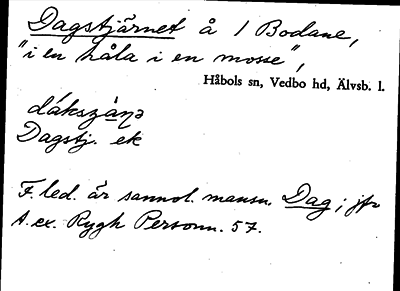 Dagstjärnet å 1 Bodane,
"i en håla i en mosse",
Håbols sn, Vedbo hd, Älvsb. l.
Dagstj. ek
F. led. är sannol. mansn. Dag; jfr
t. ex. Rygh Personn. 57.